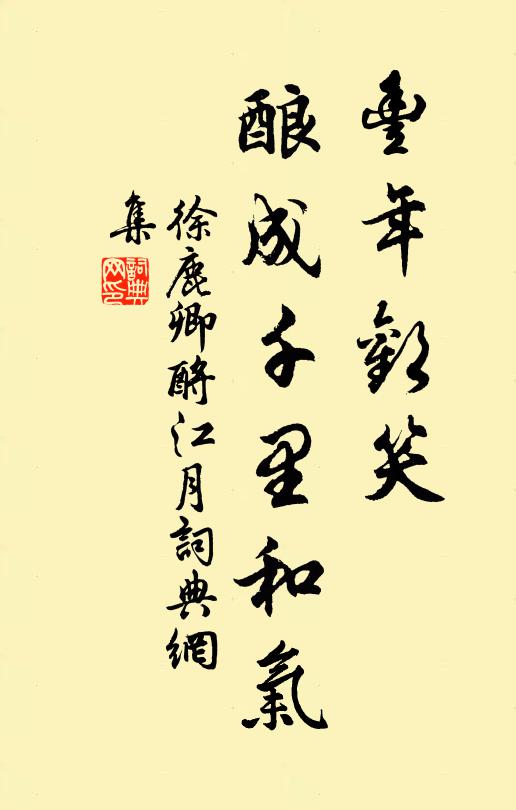 豐年歡笑
酿成千里和氣
徐鹿卿酹江月詞典網
集
詞典
网印